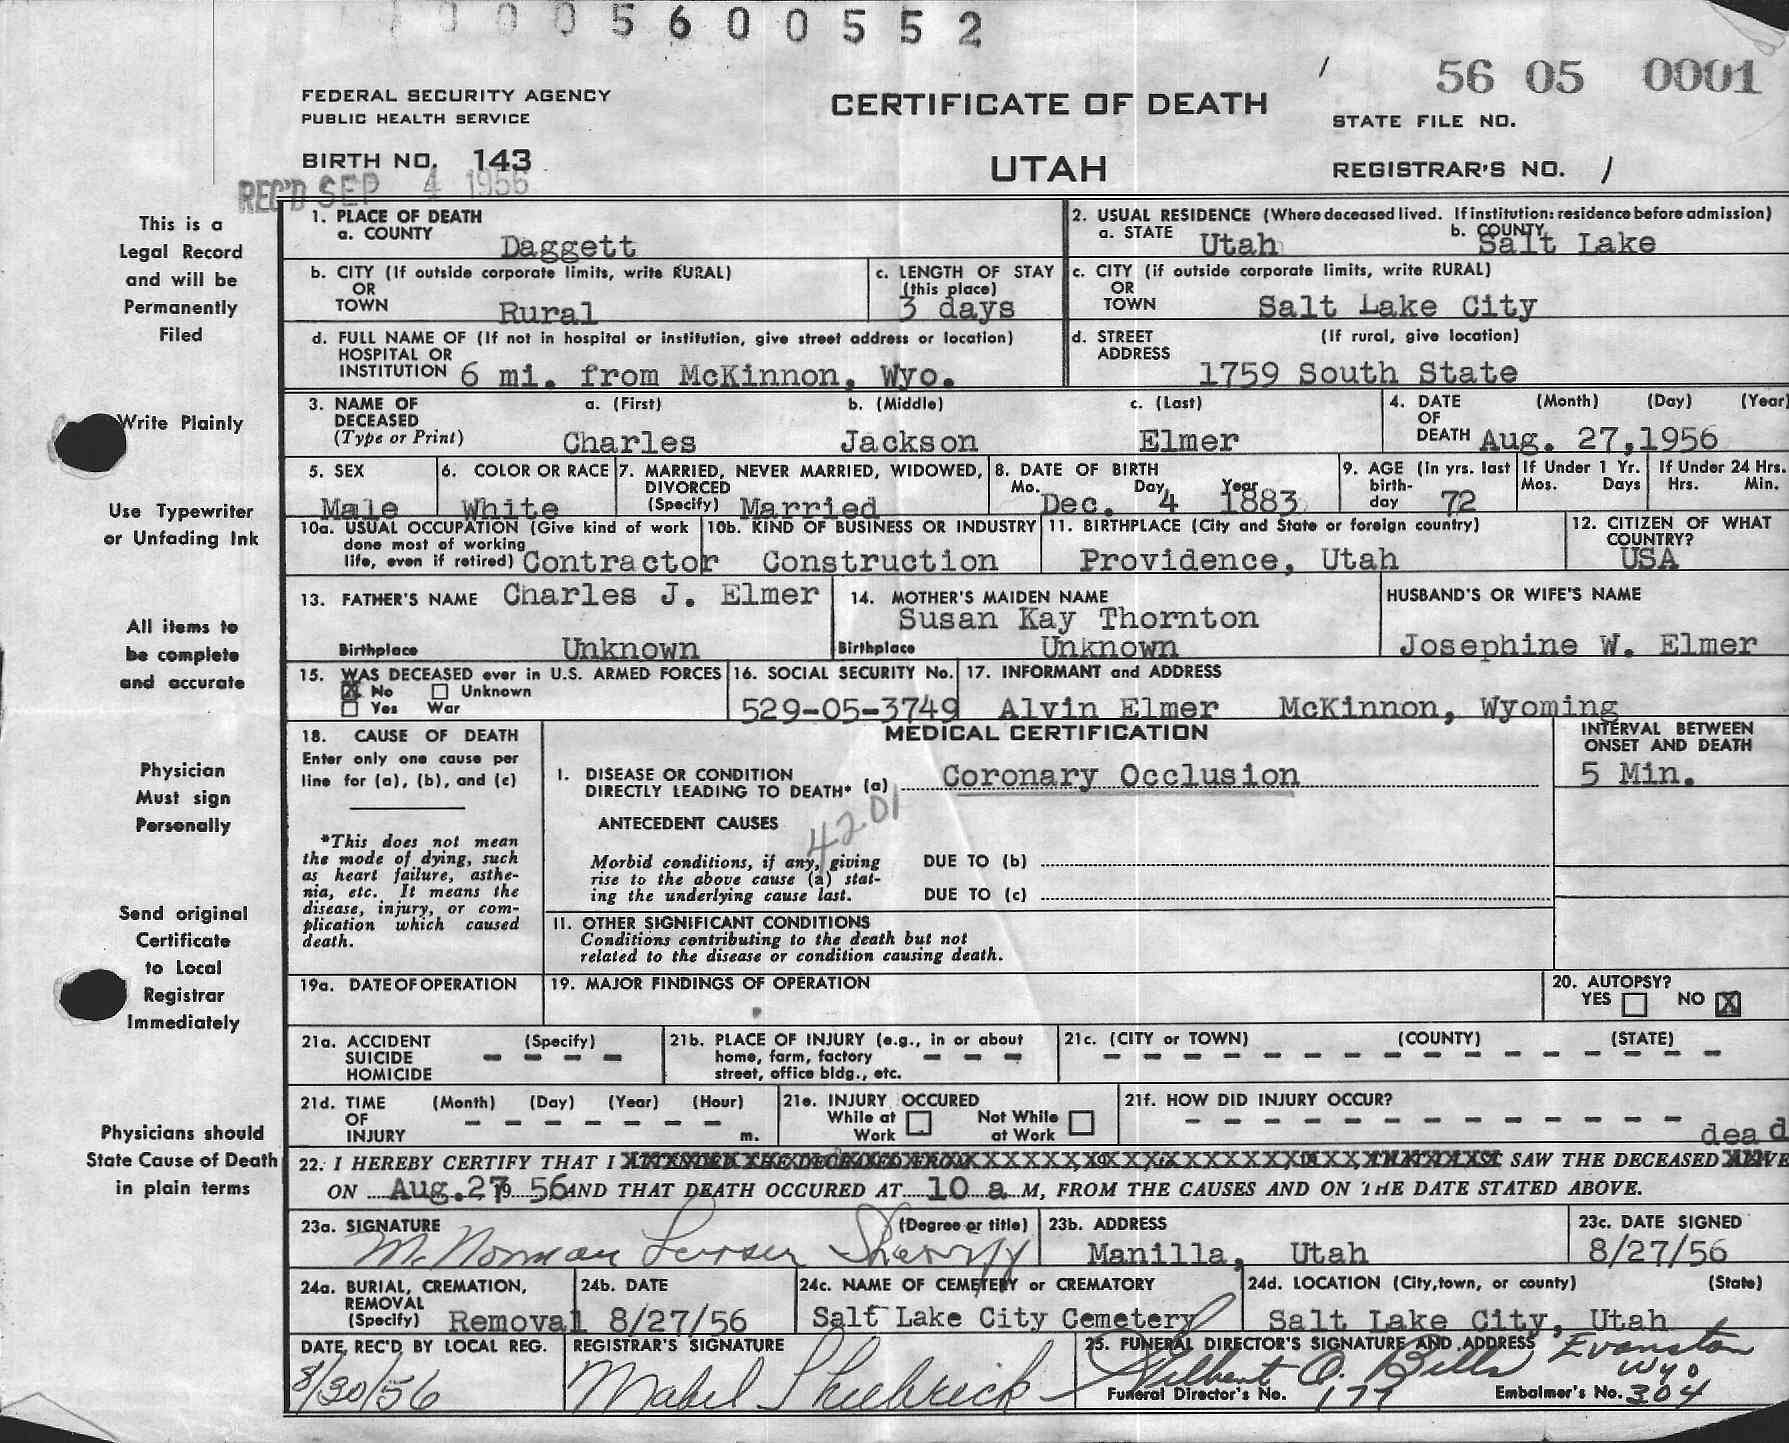 0 0 0 5 6 0 0 5 5 2
/ 56 05 0001
FEDERAL SECURITY AGENCY
PUBLIC HEALTH SERVICE
CERTIFICATE OF DEATH
STATE FILE NO.
BIRTH NO. 143
UTAH
REGISTRAR'S NO. 1
REC'D SEP 4 1956
This is a
Legal Record
and will be
Permanently
Filed
Write Plainly
Use Typewriter
or Unfading Ink
All items to
be complete
and accurate
Physician
Must sign
Personally
Send original
Certificate
to Local
Registrar
Immediately
Physicians should
State Cause of Death
in plain terms
1. PLACE OF DEATH
a. COUNTY Daggett
2. USUAL RESIDENCE (Where deceased lived. If institution: residence before admission)
a. STATE Utah b. COUNTY Salt Lake
b. CITY (If outside corporate limits, write RURAL)
OR
TOWN Rural
c. LENGTH OF STAY
(this place)
3 days
c. CITY (if outside corporate limits, write RURAL)
OR
TOWN Salt Lake City
d. FULL NAME OF (If not in hospital or institution, give street address or location)
HOSPITAL OR
INSTITUTION 6 mi. from McKinnon, Wyo.
d. STREET (If rural, give location)
ADDRESS
1759 South State
3. NAME OF a. (First) b. (Middle) c. (Last)
DECEASED
(Type or Print) Charles Jackson Elmer
4. DATE (Month) (Day) (Year)
OF
DEATH Aug. 27,1956
5. SEX
Male
6. COLOR OR RACE
White
7. MARRIED, NEVER MARRIED, WIDOWED,
DIVORCED
(Specify) Married
8. DATE OF BIRTH
Mo. Day Year
Dec. 4 1883
9. AGE (In yrs. last
birth-
day 72
If Under 1 Yr.
Mos. Days
If Under 24 Hrs.
Hrs. Min.
10a. USUAL OCCUPATION (Give kind of work
done most of working
life, even if retired) Contractor
10b. KIND OF BUSINESS OR INDUSTRY
Construction
11. BIRTHPLACE (City and State or foreign country)
Providence, Utah
12. CITIZEN OF WHAT
COUNTRY?
USA
13. FATHER'S NAME Charles J. Elmer
Birthplace Unknown
14. MOTHER'S MAIDEN NAME
Susan Kay Thornton
Birthplace Unknown
HUSBAND'S OR WIFE'S NAME
Josephine W. Elmer
15. WAS DECEASED ever in U.S. ARMED FORCES
X No Unknown
Yes War
16. SOCIAL SECURITY No.
529-05-3749
17. INFORMANT and ADDRESS
Alvin Elmer McKinnon, Wyoming
18. CAUSE OF DEATH
Enter only one cause per
line for (a), (b), and (c)
*This does not mean
the mode of dying, such
as heart failure, asthe-
nia, etc. It means the
disease, injury, or com-
plication which caused
death.
MEDICAL CERTIFICATION
INTERVAL BETWEEN
ONSET AND DEATH
I. DISEASE OR CONDITION
DIRECTLY LEADING TO DEATH* (a) Coronary Occlusion 5 Min.
4201
ANTECEDENT CAUSES
Morbid conditions, if any, giving
rise to the above cause (a) stat-
ing the underlying cause last.
DUE TO (b)
DUE TO (c)
II. OTHER SIGNIFICANT CONDITIONS
Conditions contributing to the death but not
related to the disease or condition causing death.
19a. DATE OF OPERATION
19. MAJOR FINDINGS OF OPERATION
20. AUTOPSY?
YES NO X
21a. ACCIDENT (Specify)
SUICIDE - - - -
HOMICIDE
21b. PLACE OF INJURY (e.g., in or about
home, farm, factory - - -
street, office bldg., etc.
21c. (CITY or TOWN) (COUNTY) (STATE)
- - - - - - - - - - - - - - - - -
21d. TIME (Month) (Day) (Year) (Hour)
OF - - - - - - -
INJURY m.
21e. INJURY OCCURED
While at Not While
Work at Work
21f. HOW DID INJURY OCCUR?
- - - - - - - - - - - - -
dead
22. I HEREBY CERTIFY THAT I SAW THE DECEASED
ON Aug. 27 19 56 AND THAT DEATH OCCURED AT 10 a M, FROM THE CAUSES AND ON THE DATE STATED ABOVE.
23a. SIGNATURE (Degree or title)
M. Norman Sheriff
23b. ADDRESS
Manilla, Utah
23c. DATE SIGNED
8/27/56
24a. BURIAL, CREMATION,
REMOVAL
(Specify) Removal
24b. DATE
8/27/56
24c. NAME OF CEMETERY or CREMATORY
Salt Lake City Cemetery
24d. LOCATION (City, town, or county) (State)
Salt Lake City, Utah
DATE REC'D BY LOCAL REG.
8/30/56
REGISTRAR'S SIGNATURE
Mabel
25. FUNERAL DIRECTOR'S SIGNATURE AND ADDRESS
O. Bills Evanston
Wyo
Funeral Director's No. 177 Embalmer's No. 304